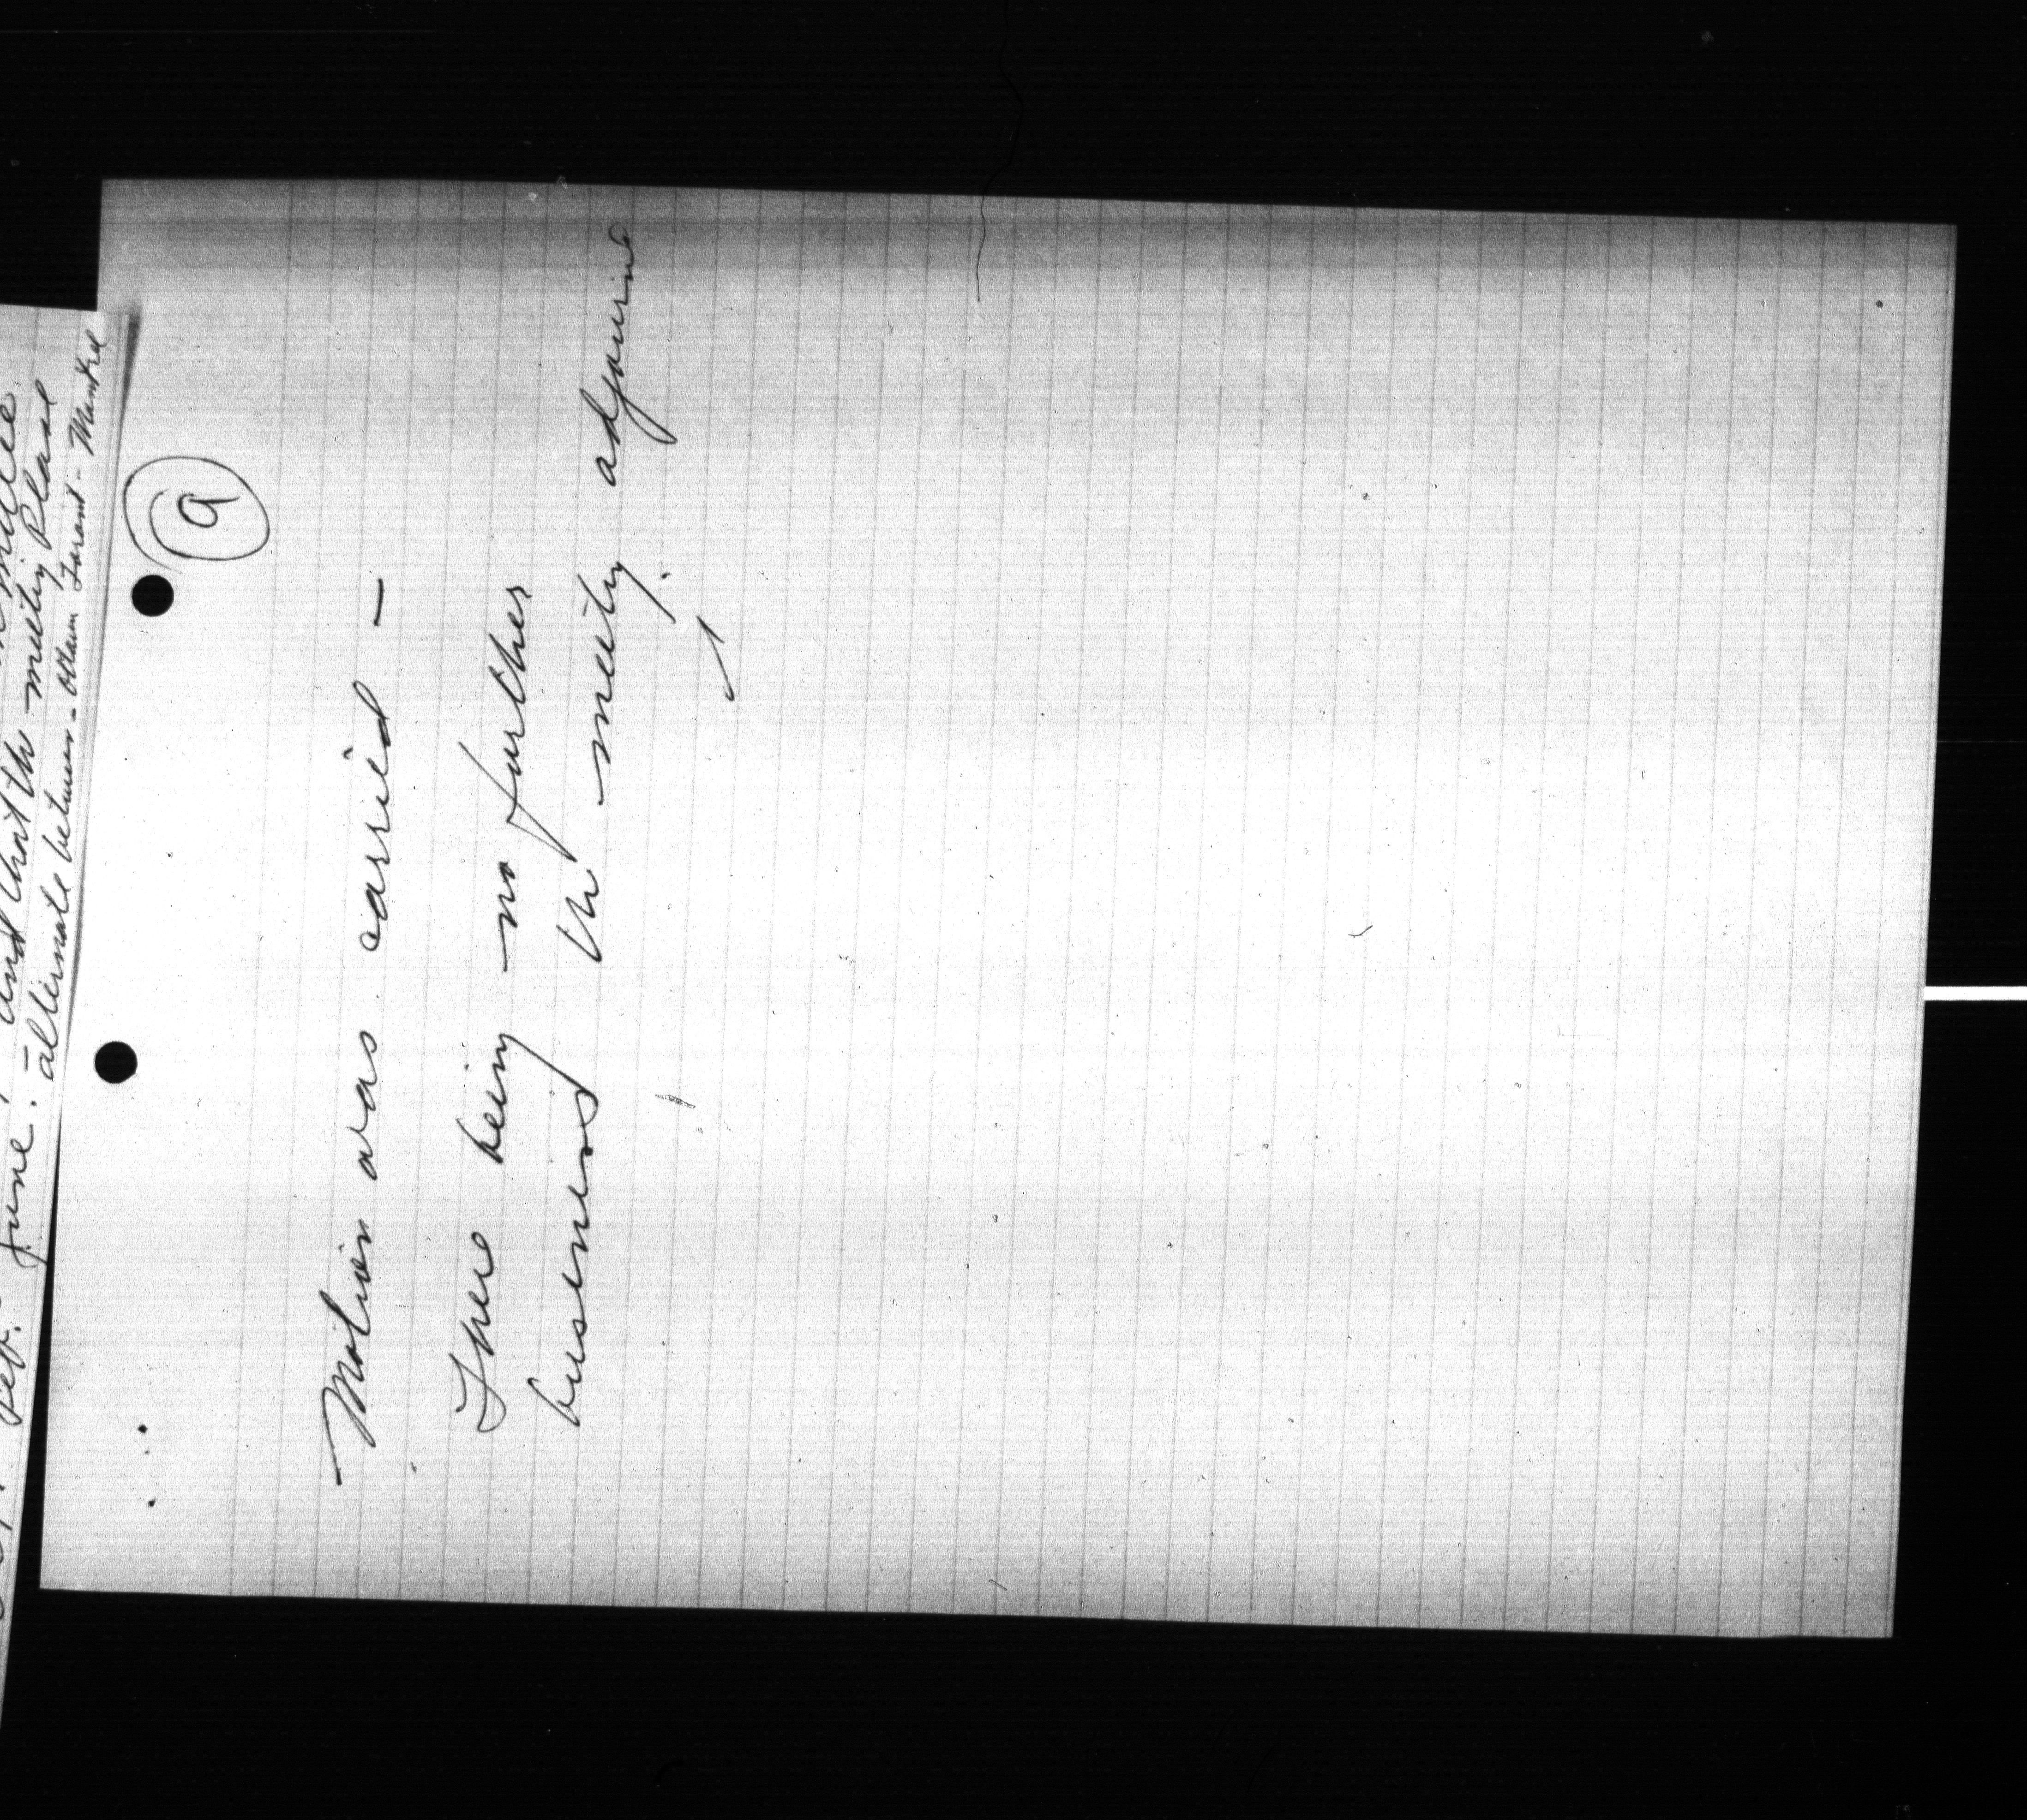 and that th meeting Please
June. - alternate between - Ottawa Toront - Montreal
9
Motion was carried -
There being no further
business the meeting adjourned